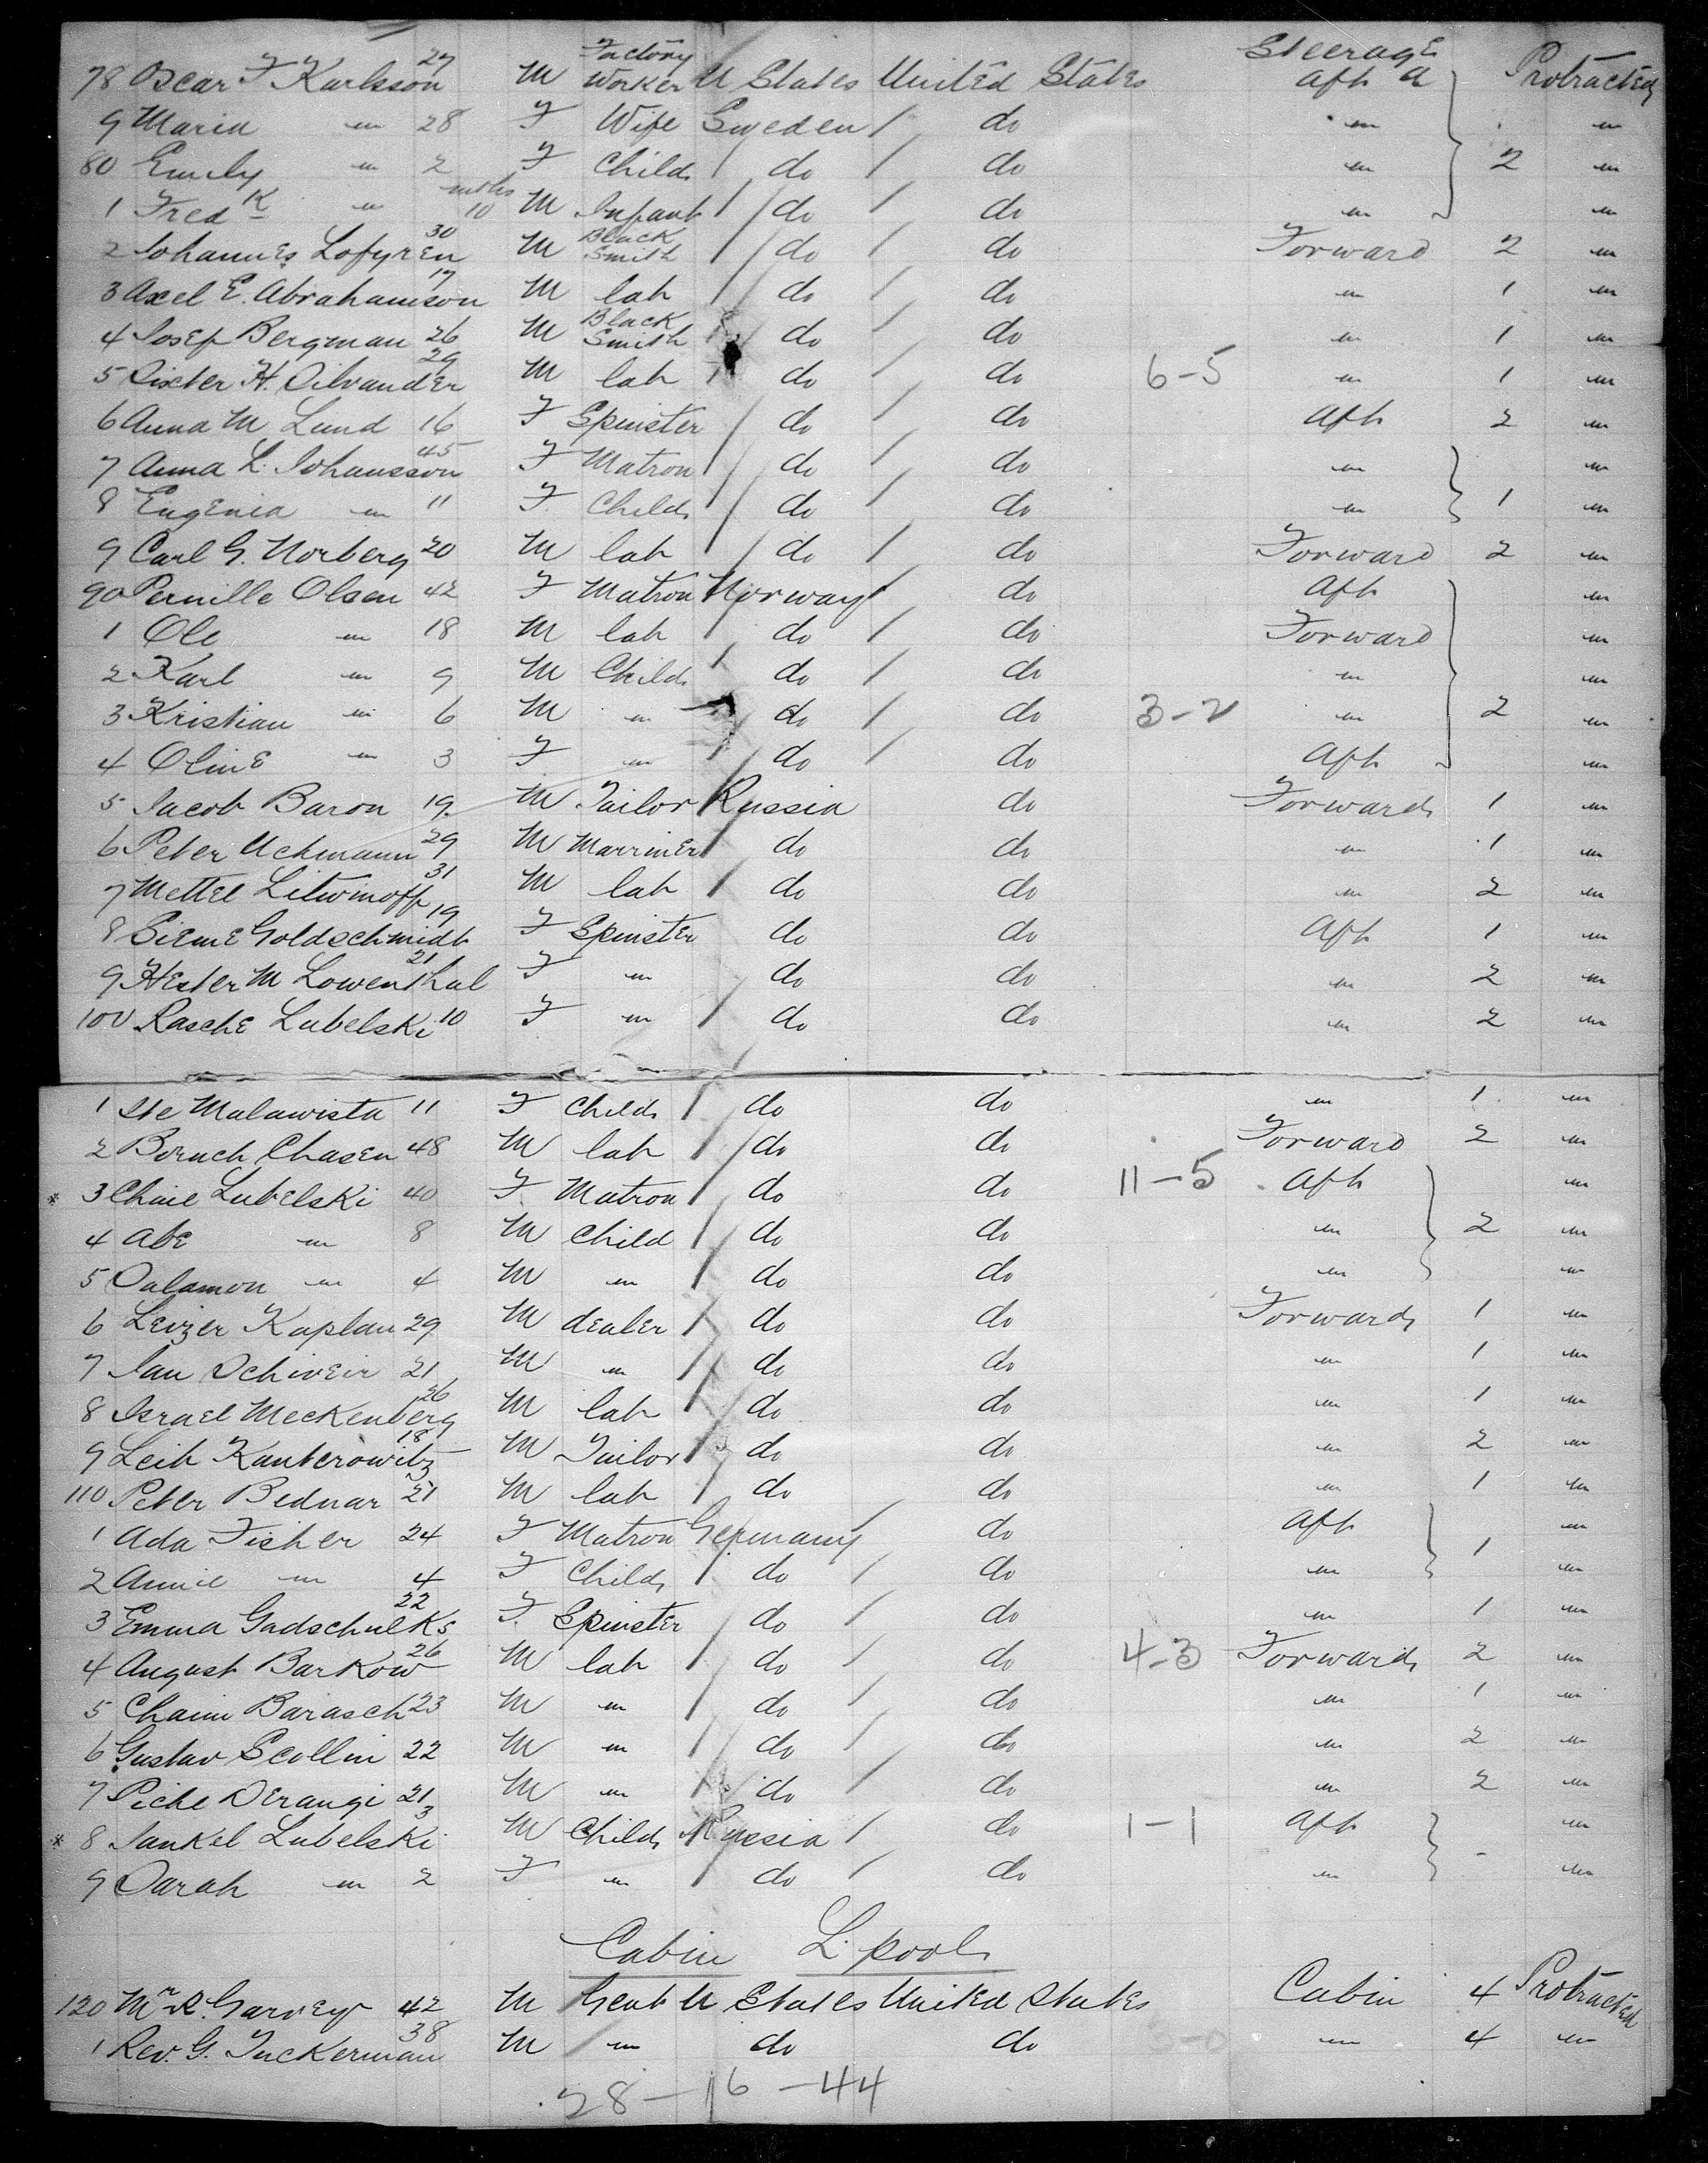 78 Oscar F Karlsson 27 M Factory Worker U States United States Steerage Aft a Protracted
9 Maria " 28 F Wife Sweden do " "
80 Emily " 2 F Child do do " 2 "
1 Fredk " mths 10 M Infant do do " "
2 Johannes Lofgren 30 M Black Smith do do Forward 2 "
3 Axel E. Abrahamson 17 M lab do do " 1 "
4 Josef Bergman 26 M Black Smith do do " 1 "
5 H. Silvander 29 M lab do do 6-5 " 1 "
6 Anna M Lund 16 F Spinster do do Aft 2 "
7 Anna L. Johansson 45 F Matron do do " "
8 Eugenia " 11 F Child do do " 1 "
9 Carl G. Norberg 20 M lab do do Forward 2 "
90 Pernille Olsen 42 F Matron Norway do Aft "
1 Ole " 18 M lab do do Forward "
2 Karl " 9 M Child do do " "
3 Kristian " 6 M " do do 3-2 " 2 "
4 Oline " 3 F " do do Aft "
5 Jacob Baron 19 M Tailor Russia do Forward 1 "
6 Peter Uckmann 29 M Marriner do do " 1 "
7 Mettel Litwinoff 31 M lab do do " 2 "
8 Sieme Goldschmidt 19 F Spinster do do Aft 1 "
9 Hester M Lowenthal 21 F " do do " 2 "
100 Rasche Lubelski 10 F " do do " 2 "
1 Ste Malawista 11 F Child do do " 1 "
2 Boruch Chasen 48 M lab do do Forward 2 "
* 3 Chaie Lubelski 40 F Matron do do 11-5 Aft "
4 Abe " 8 M Child do do " 2 "
5 Salamon " 4 M " do do " "
6 Leizer Kaplan 29 M dealer do do Forward 1 "
7 Jan Schiveir 21 M " do do " 1 "
8 Israel Meckenberg 26 M lab do do " 1 "
9 Leib Kanterowitz 18 M Tailor do do " 2 "
110 Peter Bednar 21 M lab do do " 1 "
1 Ada Fisher 24 F Matron Germany do Aft "
2 Annie " 4 F Child do do " 1 "
3 Emma Gadschulks 22 F Spinster do do " 1 "
4 August Barkow 26 M lab do do 4-3 Forward 2 "
5 Chaim Barasch 23 M " do do " 1 "
6 Gustav Scollin 22 M " do do " 2 "
7 Piche Derangi 21 M " do do " 2 "
* 8 Jankel Lubelski 3 M Child Russia do 1-1 Aft "
9 Sarah " 2 F " do do " - "
Cabin L.pool
120 Mr R. Garvey 42 M Gent U States United States Cabin 4 Protracted
1 Rev. G. Tuckerman 38 M " do do 3-0 " 4 "
28-16-44